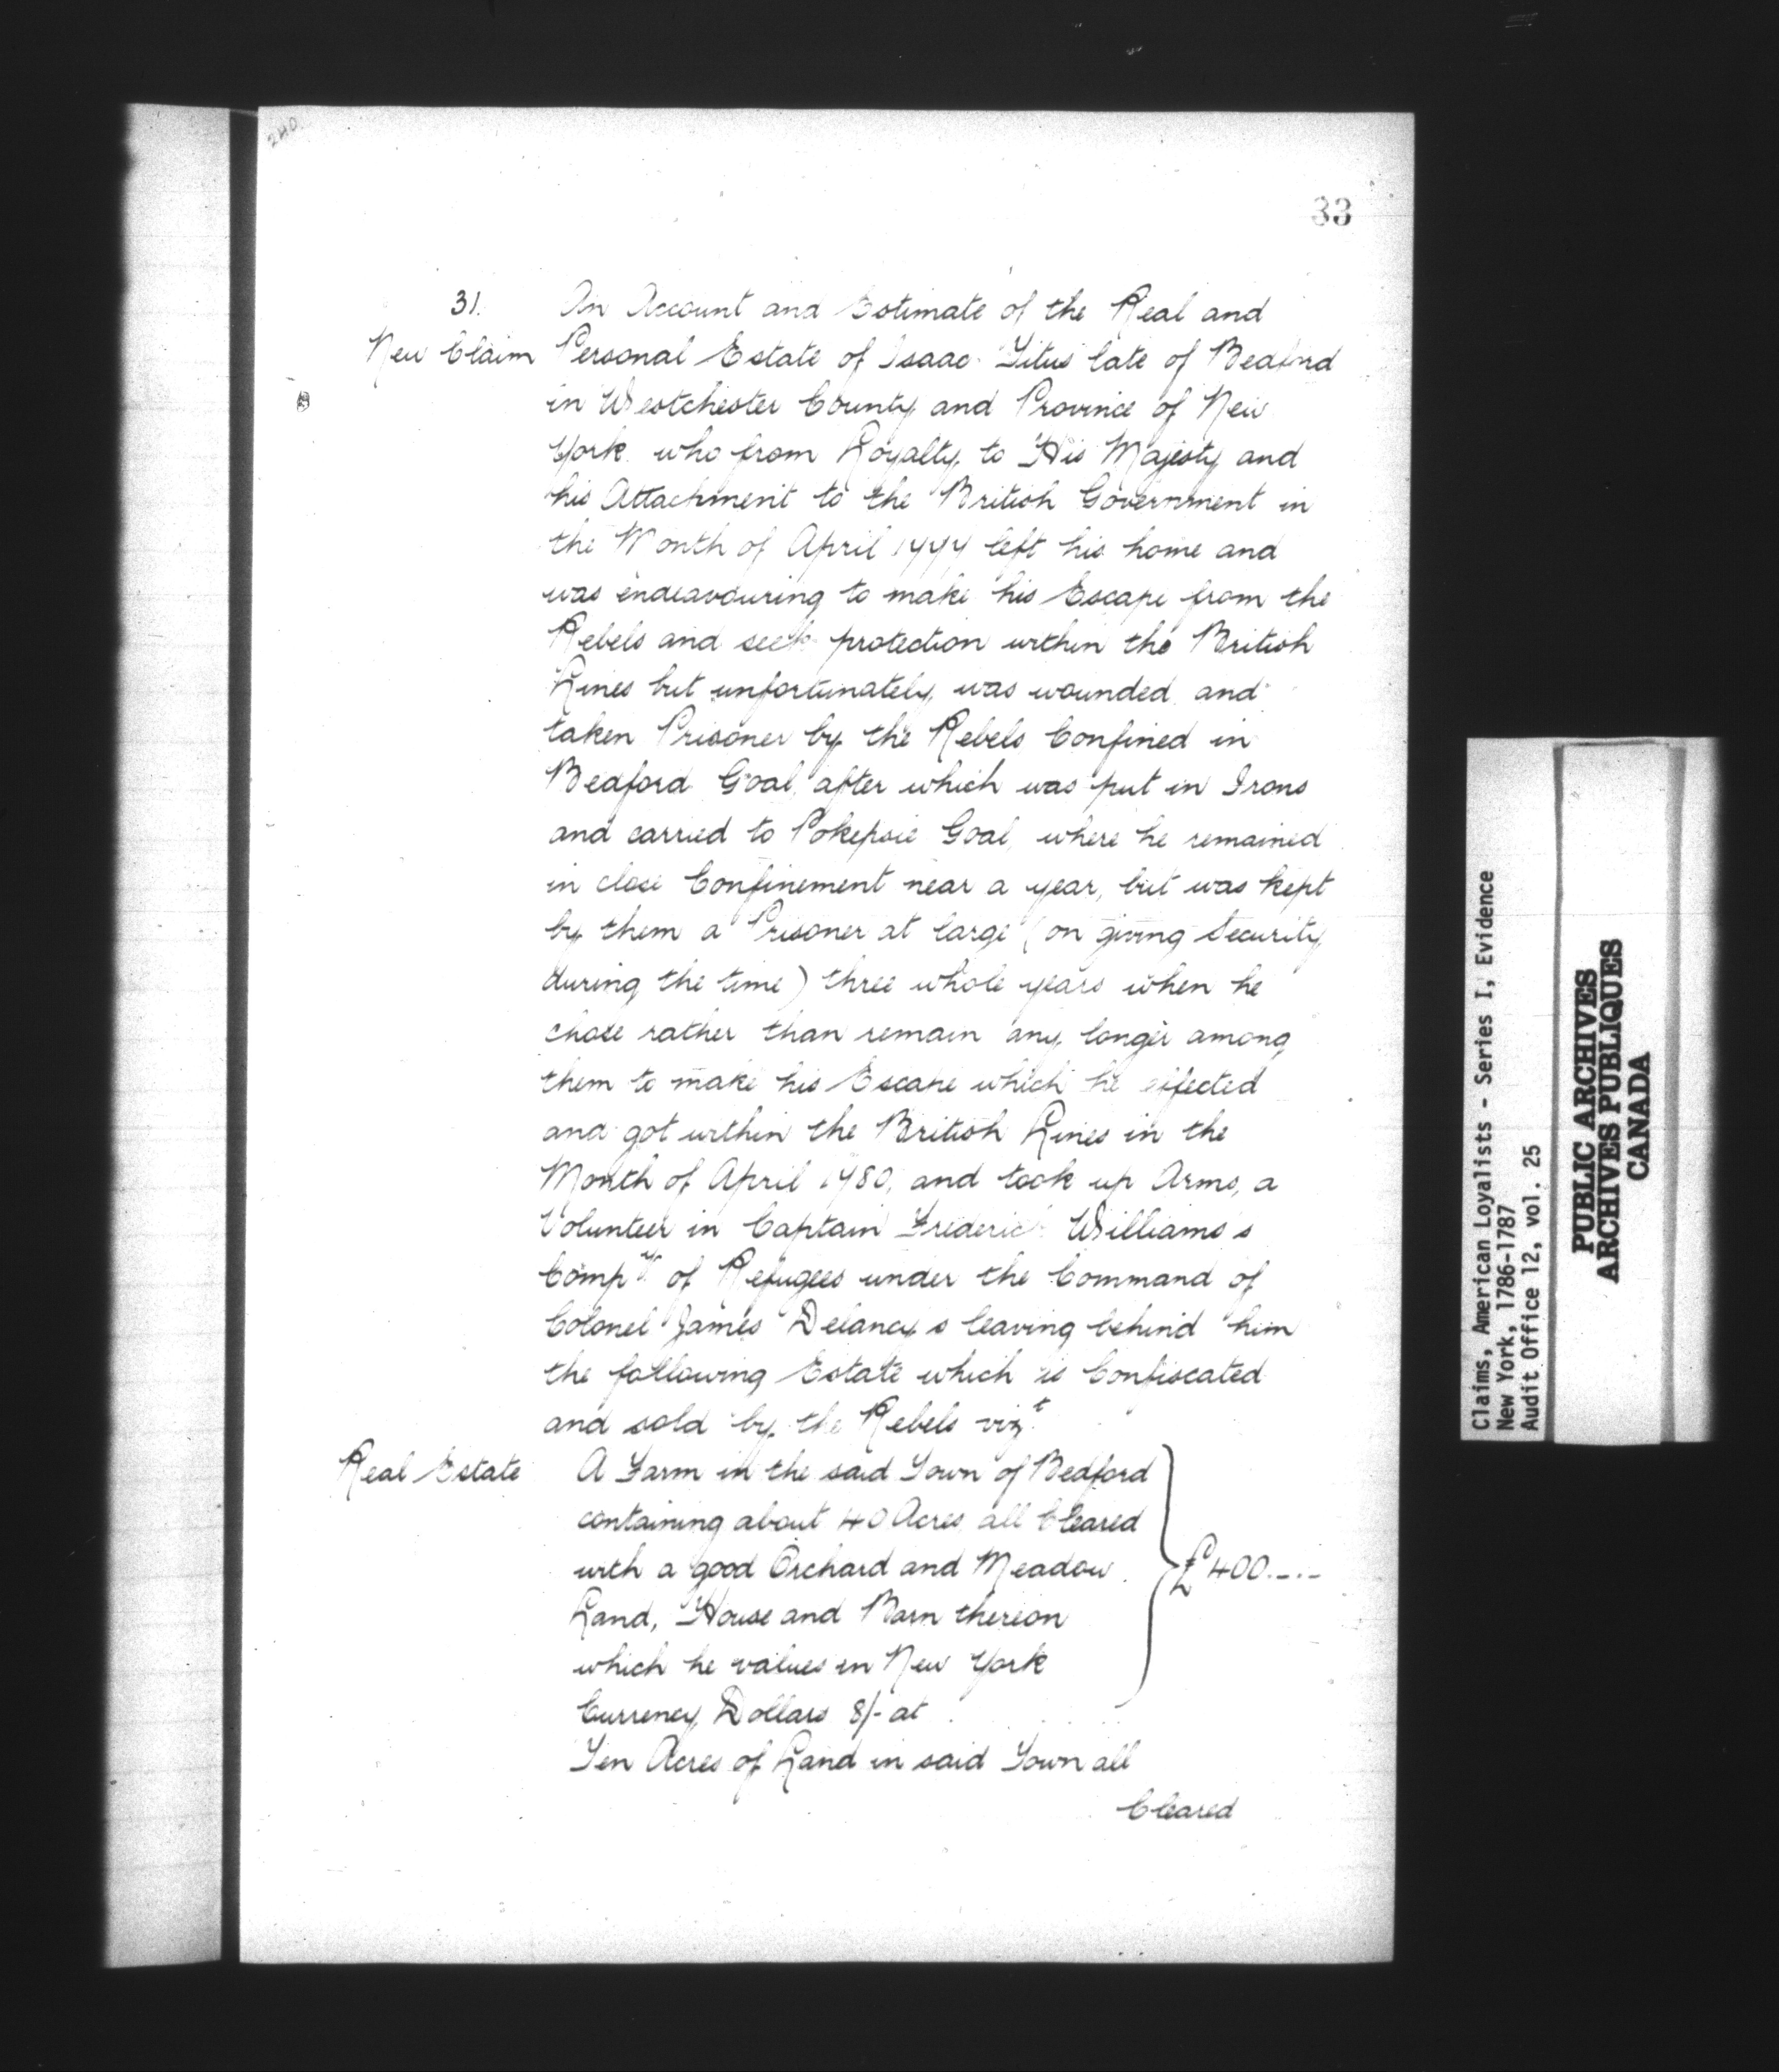 240
33
31.
New Claim
An Account and Estimate of the Real and
Personal Estate of Isaac Titus late of Bedford
in Westchester County and Province of New
York who from Loyalty to His Majesty and
his Attachment to the British Government in
the Month of April 1777 left his home and
was endeavouring to make his Escape from the
Rebels and seek protection within the British
Lines but unfortunately was wounded and
taken Prisoner by the Rebels Confined in
Bedford Goal, after which was put in Irons
and carried to Pokepsie Goal, where he remained
in close Confinement near a year, but was kept
by them a Prisoner at large (on giving Security
during the time) three whole years when he
chose rather than remain any longer among
them to make his Escape which he effected
and got within the British Lines in the
Month of April 1780, and took up Arms, a
Volunteer in Captain Frederick Williams's
Compy. of Refugees under the Command of
Colonel James Delancy's leaving behind him
the following Estate which is Confiscated
and sold by the Rebels vizt.
Real Estate
A Farm in the said Town of Bedford
containing about 40 Acres all Cleared
with a good Orchard and Meadow
Land, House and Barn thereon
which he values in New York
Currency Dollars 8/- at
£400.-.-
Ten Acres of Land in said Town all
Cleared
Claims, American Loyalists - Series I, Evidence
New York, 1786-1787
Audit Office 12, vol. 25
PUBLIC ARCHIVES
ARCHIVES PUBLIQUES
CANADA